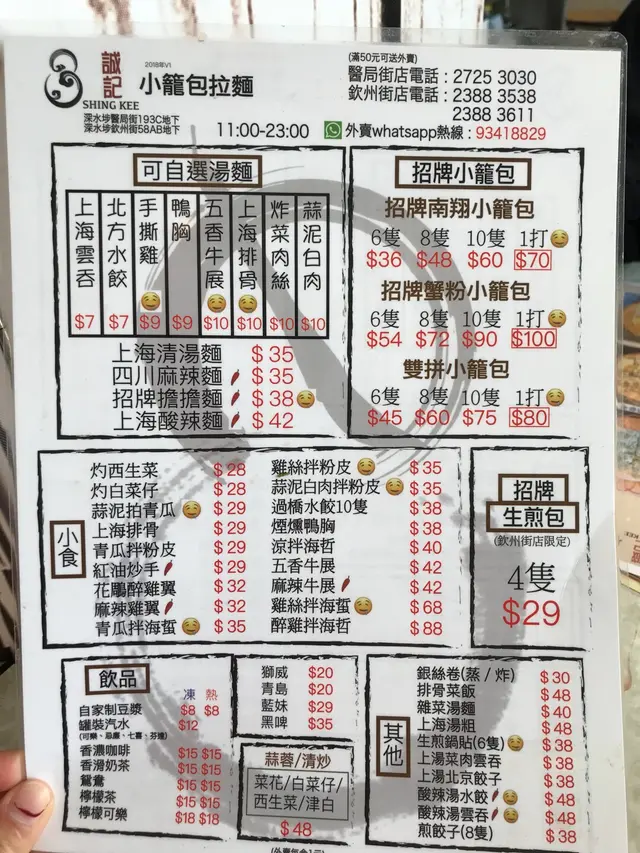 誠記
SHING KEE
2018年V1
小籠包拉麵
深水埗醫局街193C地下
深水埗欽州街58AB地下
(滿50元可送外賣)
醫局街店電話：2725 3030
欽州街店電話：2388 3538
2388 3611
11:00-23:00 外賣whatsapp熱線：93418829
可自選湯麵
上海雲吞 $7
北方水餃 $7
手撕雞 $9
鴨胸 $9
五香牛展 $10
上海排骨 $10
炸菜肉絲 $10
蒜泥白肉 $10
上海清湯麵 $35
四川麻辣麵 $35
招牌擔擔麵 $38
上海酸辣麵 $42
招牌小籠包
招牌南翔小籠包
6隻 8隻 10隻 1打
$36 $48 $60 $70
招牌蟹粉小籠包
6隻 8隻 10隻 1打
$54 $72 $90 $100
雙拼小籠包
6隻 8隻 10隻 1打
$45 $60 $75 $80
小食
灼西生菜 $28
灼白菜仔 $28
蒜泥拍青瓜 $29
上海排骨 $29
青瓜拌粉皮 $29
紅油炒手 $29
花雕醉雞翼 $32
麻辣雞翼 $32
青瓜拌海蜇 $35
雞絲拌粉皮 $35
蒜泥白肉拌粉皮 $35
過橋水餃10隻 $38
煙燻鴨胸 $38
涼拌海哲 $40
五香牛展 $42
麻辣牛展 $42
雞絲拌海蜇 $68
醉雞拌海哲 $88
招牌
生煎包
(欽州街店限定)
4隻
$29
飲品
凍 熱
自家制豆漿 $8 $8
罐裝汽水 $12
(可樂、忌廉、七喜、芬達)
香濃咖啡 $15 $15
香滑奶茶 $15 $15
鴛鴦 $15 $15
檸檬茶 $15 $15
檸檬可樂 $18 $18
獅威 $20
青島 $20
藍妹 $29
黑啤 $35
蒜蓉/清炒
菜花/白菜仔/
西生菜/津白
$48
其他
銀絲卷(蒸 / 炸) $30
排骨菜飯 $48
雜菜湯麵 $40
上海湯粗 $48
生煎鍋貼(6隻) $38
上湯菜肉雲吞 $38
上湯北京餃子 $38
酸辣湯水餃 $48
酸辣湯雲吞 $48
煎餃子(8隻) $38